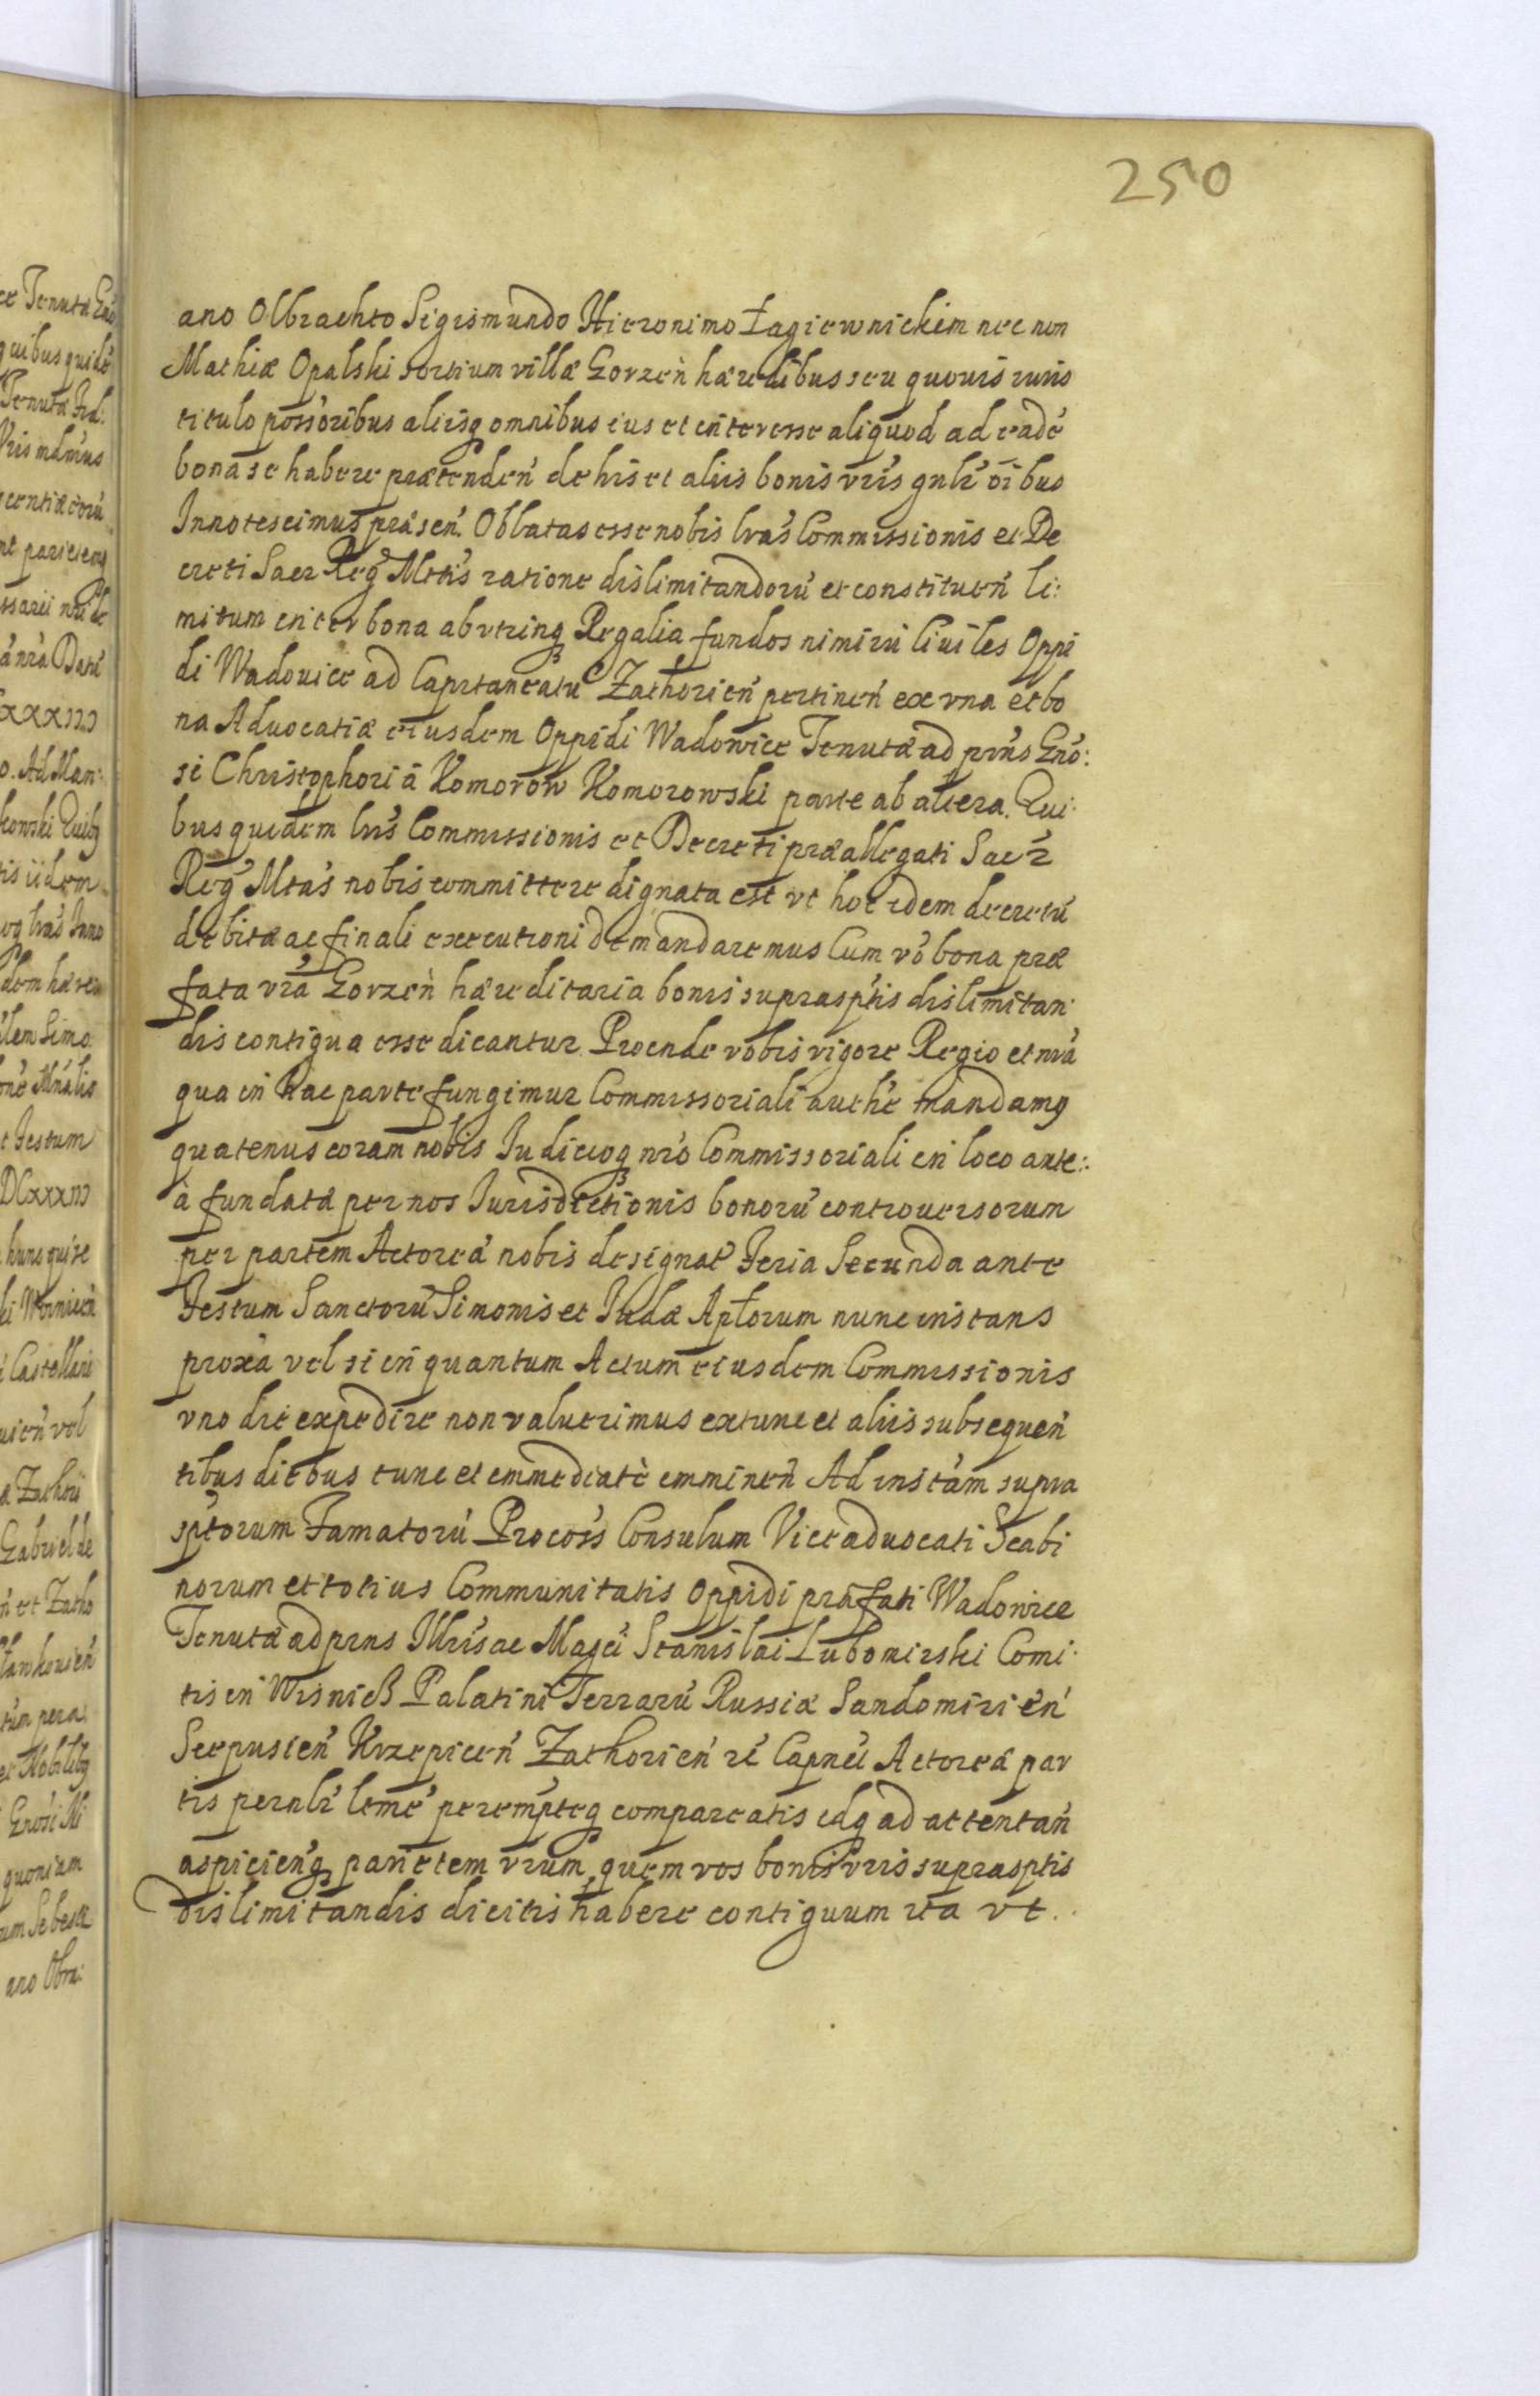 250
ano Olbrachto Sigismundo Hieronimo Łagiewnickim nec non
Mathiæ Opalski sortium villæ Gorzeń hæredibus seu quouis iuris
titulo possoribus aliisq omnibus ius et interesse aliquod ad eadé
bona se habere prætendeń de his et aliis bonis vrís gnlŕ oībus
Innotescimus præseń. Oblatas esse nobis lrás Commissionis et De
creti Sacr Reg Mttis ratione dislimitandorú et constitueń li:
mitum inter bona ab vtrinq Regalia fundos nimirú Ciuiles Oppi
di Wadouice ad Capitaneatú Zathorień pertineń ex vna et bo
na Aduocatiæ eiusdem Oppidi Wadowice Tenutæ ad prńs Gnó:
si Christophori á Komorow Komorowski parte ab altera. Qui:
bus quidem lrís Commissionis et Decreti præallegati Sacr
Reg Mtás nobis committere dignata est vt hoc idem decretú
debitæ ac finali executioni demandaremus Cum vó bona præ
fata vrá Gorzeń hæreditaria bonis suprasptis dislimitan:
dis contigua esse dicantur. Proinde vobis vigore Regio et nrá
qua in hac parte fungimur Commissoriali authe mandamq
quatenus coram nobis Judicioq nró Commissoriali in loco ante:
à fundatæ per nos Jurisdictionis bonorú controuersorum
per partem Actoreá nobis designať Feria Secunda ante
Festum Sanctorú Simonis et Judæ Aptorum nunc instans
proxá vel si in quantum Actum eiusdem Commissionis
vno die expedire non valuerimus extunc et aliis subsequeń
tibus diebus tunc et immediatè immineń Ad instám supra
sptorum Famatorú Procoŕs Consulum Viceaduocati Scabi
norum et totius Communitatis Oppidi præfati Wadowice
Tenutæ ad prns Illrís ac Magci Stanislai Lubomirski Comi:
tis in Wisnicz Palatini Terrarú Russiæ Sandomirień
Scepusień Krzepiceń Zathorień ré Capnei Actoreá par
tis pernlŕ lemé perempteq compareatis idq ad attentań
aspicieńq parietem vrum quem vos bonis vris suprasptis
dislimitandis dicitis habere contiguum ita vt.